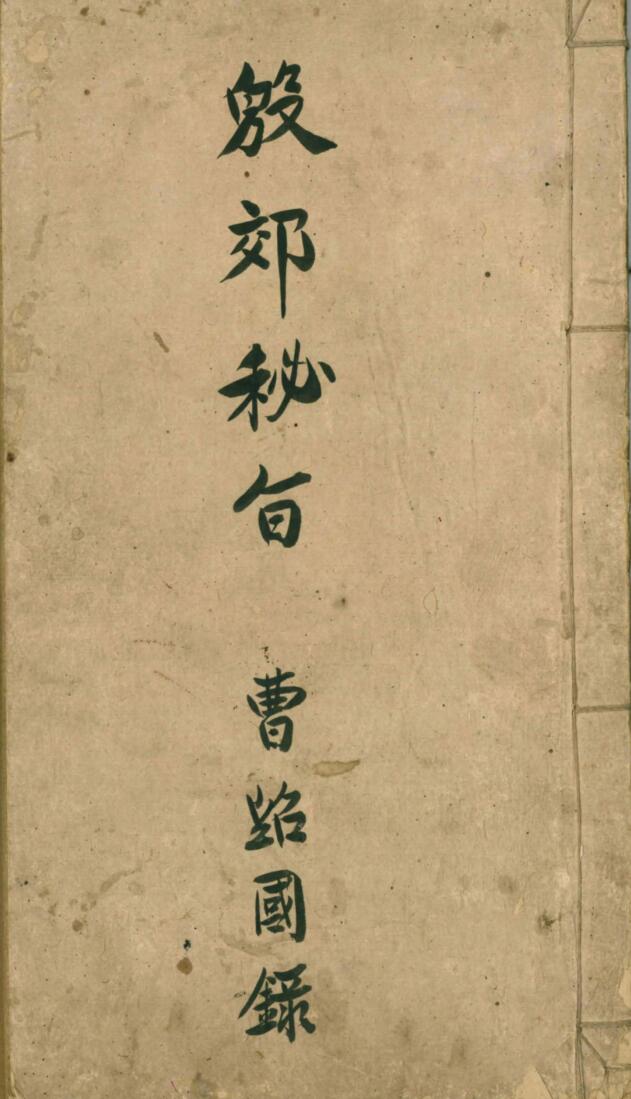 殷郊秘旨 曹國錄